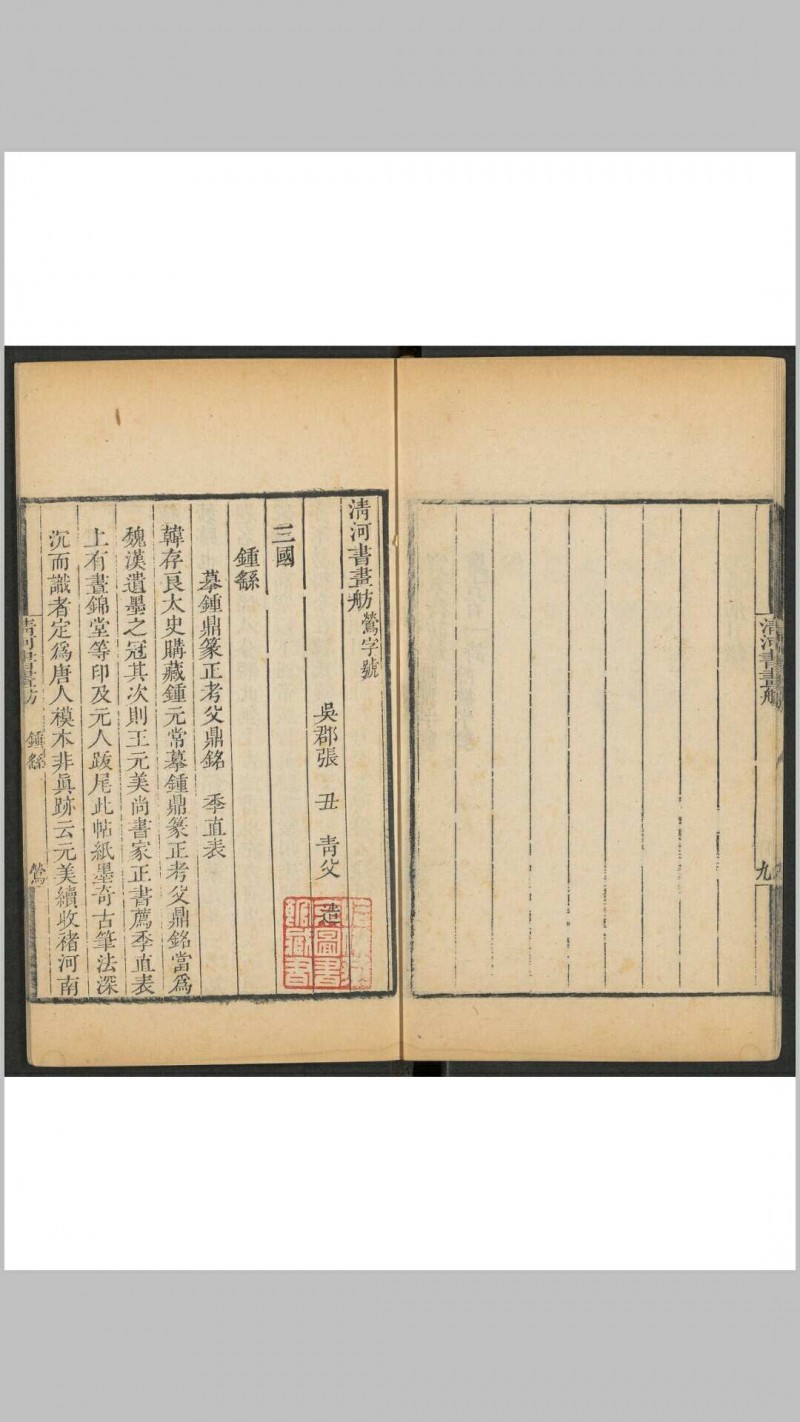 清河書畫舫
九
清河書畫舫鶯字號
吳郡張丑青父
三國
鍾繇
摹鍾鼎篆正考父鼎銘 季直表
韓存良太史購藏鍾元常摹鍾鼎篆正考父鼎銘當爲
魏漢遺墨之冠其次則王元美尚書家正書薦季直表
上有晝錦堂等印及元人跋尾此帖紙墨奇古筆法深
沉而識者定爲唐人模本非眞跡云元美續收褚河南
清河書畫舫 鍾繇 鶯